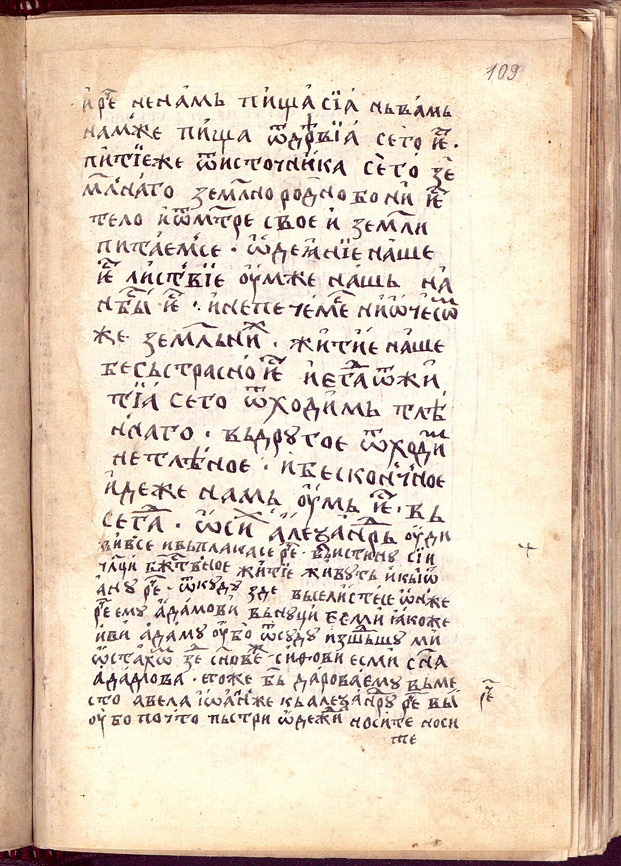 109
и҆ р҃е не на́мь пи́ща сїа̀ нь ва́мь
на́м же пи́ща ѿ дрѣ́вїа сего̀ и҆е҃ .
пи́тїе же ѿ исто́чника сего̀ зе
мл҄наго земл҄но родно бо ни и҆е҃
тело и҆ ѿ мт҃ре свое и҆ земл҄и
пита́ем се . ѡ҆де́ꙗнїе на́ше
и҆е҃ ли́ствїе оу҆м же на́шь на
нб҃сы и҆е҃ . и҆ не пе че́м се ни ѡ҆ чесо
же земл҄ьни . жи́тїе на́ше
бесьстра́сно и҆е҃ и҆ егда ѿ жи
тїа сего ѿхо́димь тлѣ
н́наго . вь дру́гое ѿхо́ди
нетлѣ́ное . и҆ беско́нч́ное
и҆де́же на́мь оу҆мь и҆е҃ . вь
сегда . ѡ҆ си а҆леѯандрь оу҆ди
вив́се и вьплака се р҃е . вьистину сїи
чл҃ци бж҃тв́ное жи́тїе живуть и҆ к иѡ҆
а́ну р҃е . ѿкуду зде вьселисте се ѡ҆н же
р҃е ему а҆дамови вьнуци есми ꙗ҆коже
и҆ви а҆даму оу҆бо ѿсуду изшь́дшу ми
ѡ҆стахѡм зе сн҃ове сифови есми сн҃а
а҆дамова . его же б҃ь дарова е҆му вьме
сто авела иѡ҆ан же кь алеѯандру р҃е вы
оу҆бо почто пьстри ѡ҆дежи носите носи
те
р҃е